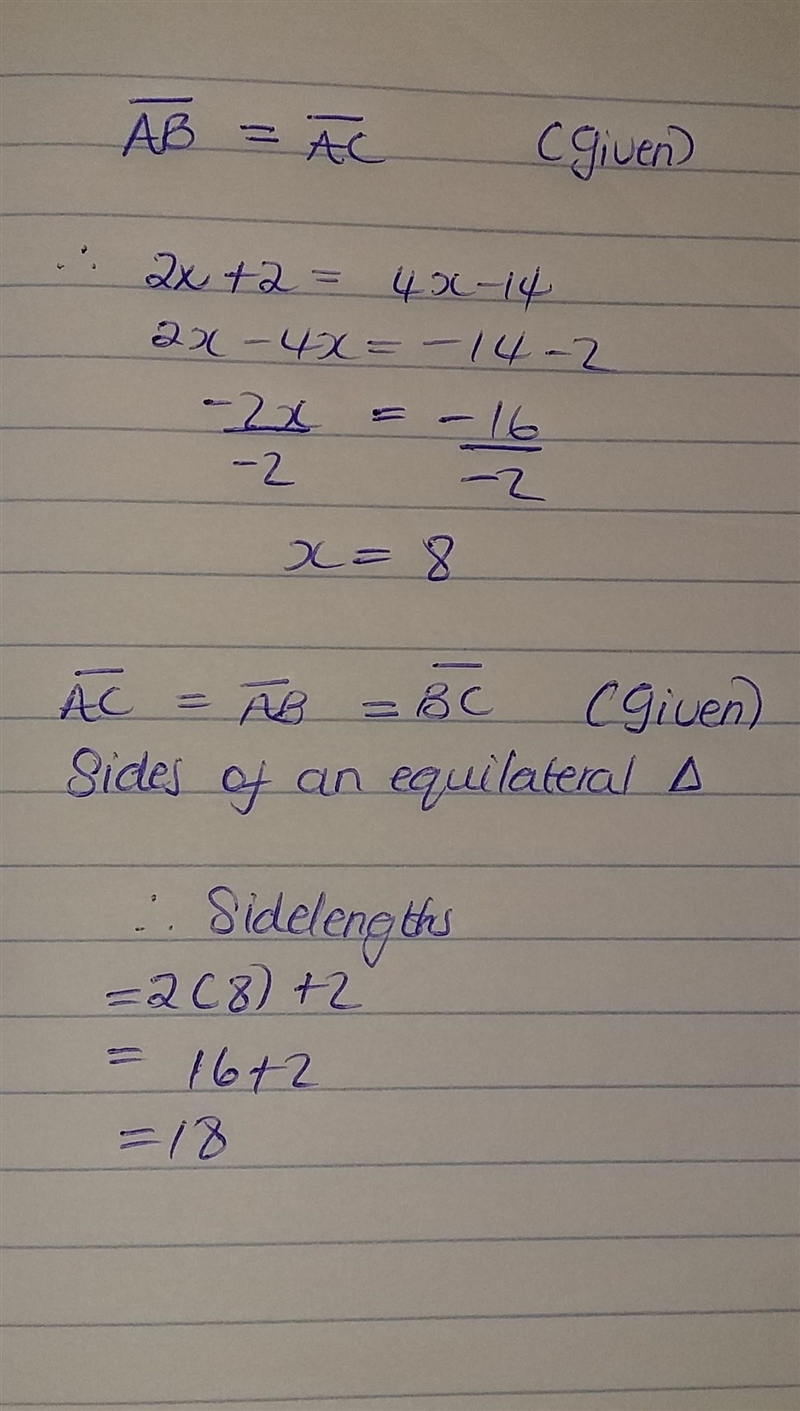 A̅B̅ = A̅C̅ (Given)
∴ 2x + 2 = 4x - 14
2x - 4x = -14 - 2
-2x/-2 = -16/-2
x = 8
A̅C̅ = A̅B̅ = B̅C̅ (Given)
Sides of an equilateral Δ
∴ Sidelengths
= 2(8) + 2
= 16 + 2
= 18